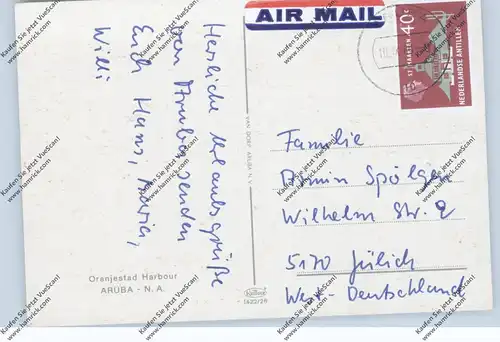 AIR MAIL
40c
ST. MAARTEN
NEDERLANDSE ANTILLEN
Herzliche Urlaubsgrüße
von Aruba senden
Euch Hans, Maria,
Willi
Familie
Armin Spölgen
Wilhelm Str. 2
5170 Jülich
West-Deutschland
VAN DORP ARUBA N.V.
Oranjestad Harbour
ARUBA - N. A.
Kaufen Sie jetzt VueScan!
www.hamrick.com